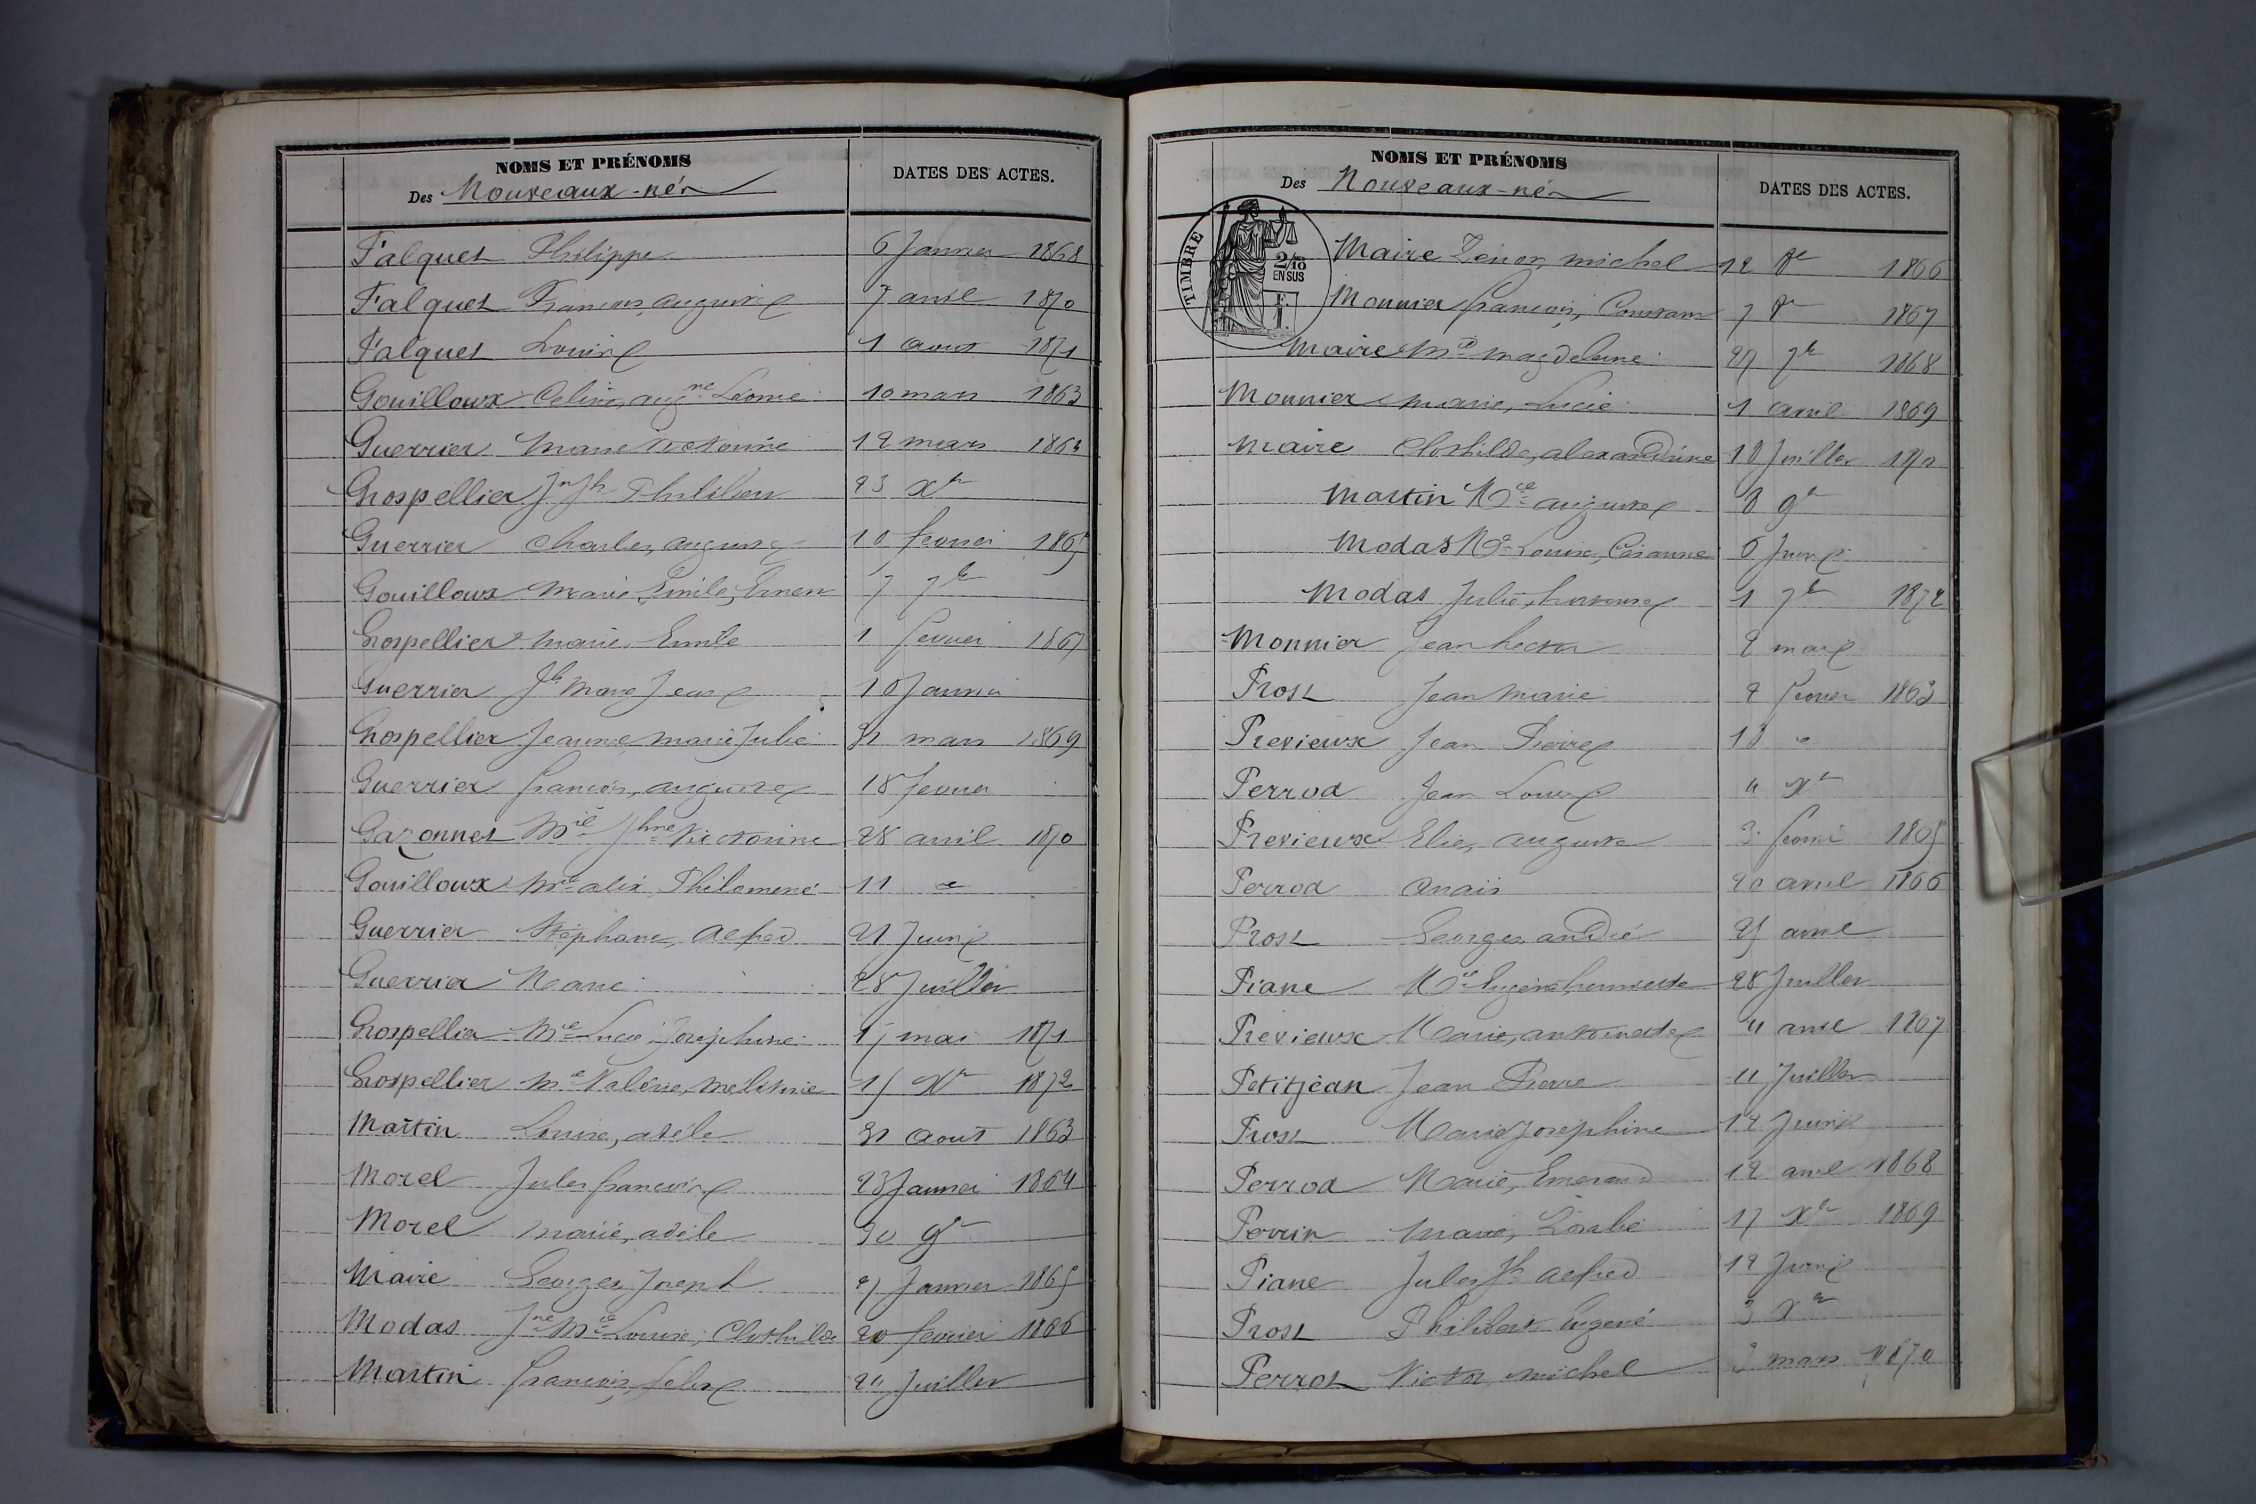 NOMS ET PRÉNOMS
Des Nouveaux-nés
DATES DES ACTES.
Falquet Philippe 6 Janvier 1868
Falquet François, auguste 7 avril 1870
Falquet Louise 1 aout 1871
Gouilloux Celine, augne Léonie 10 mars 1863
Guerrier Marie Victorine 12 mars 1863
Grospellier Jn Jh Philibert 23 Xbre
Guerrier Charles, auguste 10 fevrier 1865
Gouilloux Marie, Emile, Ernest 7 7bre
Grospellier Marie Emile 1 fevrier 1867
Guerrier Jh Marie Jean 10 Janvier
Grospellier Jeanne, marie Julie 31 mars 1869
Guerrier François, auguste 18 fevrier
Gazonnet Mrie Jhne Victorine 28 avril 1870
Gouilloux Mie alix Philomene 11 d°
Guerrier Stéphane, Alfred 21 Juin
Guerrier Marie 28 Juillet
Grospellier Mie Lucie Joséphine 17 mai 1871
Grospellier Mie Valérie, Melitine 15 Xbre 1872
Martin Louise, adèle 31 Aout 1863
Morel Jules François 23 Janvier 1864
Morel Marie, adèle 30 9bre
Maire Georges Joseph 27 Janvier 1865
Modas Jne Mie Louise, Clothilde 20 fevrier 1866
Martin François, felix 24 Juillet
NOMS ET PRÉNOMS
Des Nouveaux-nés
DATES DES ACTES.
TIMBRE
2/10
EN SUS
Maire Michel 12 8bre 1866
Monnier François, Constant 7 8bre 1867
Maire Mie Magdeleine 27 7bre 1868
Monnier Marie, Lucie 1 avril 1869
Maire Clothilde, alexandrine 18 Juillet
Martin Mie auguste 8 9bre
Modas Mie Louise, Césarine 6 Juin
Modas Julie, 1 7bre 1872
Monnier Jean hector 2 mars
Prost Jean Marie 2 fevrier 1863
Previeux Jean Pierre 18 d°
Perrod Jean Louis 4 Xbre
Previeux Elie, auguste 3 fevrier 1865
Perrod Anaïs 20 avril 1866
Prost Georges andré 25 avril
Piane Mie Eugénie, henriette 28 Juillet
Previeux Marie, antoinette 4 avril 1867
Petitjean Jean Pierre 11 Juillet
Prost Marie Joséphine 14 Juin
Perrod Marie, 12 avril 1868
Perrin Marie, 17 Xbre 1869
Piane Jules Jh Alfred 12 Juin
Prost Philibert Eugene 3 Xbre
Perrot Victor michel 2 mars 1870